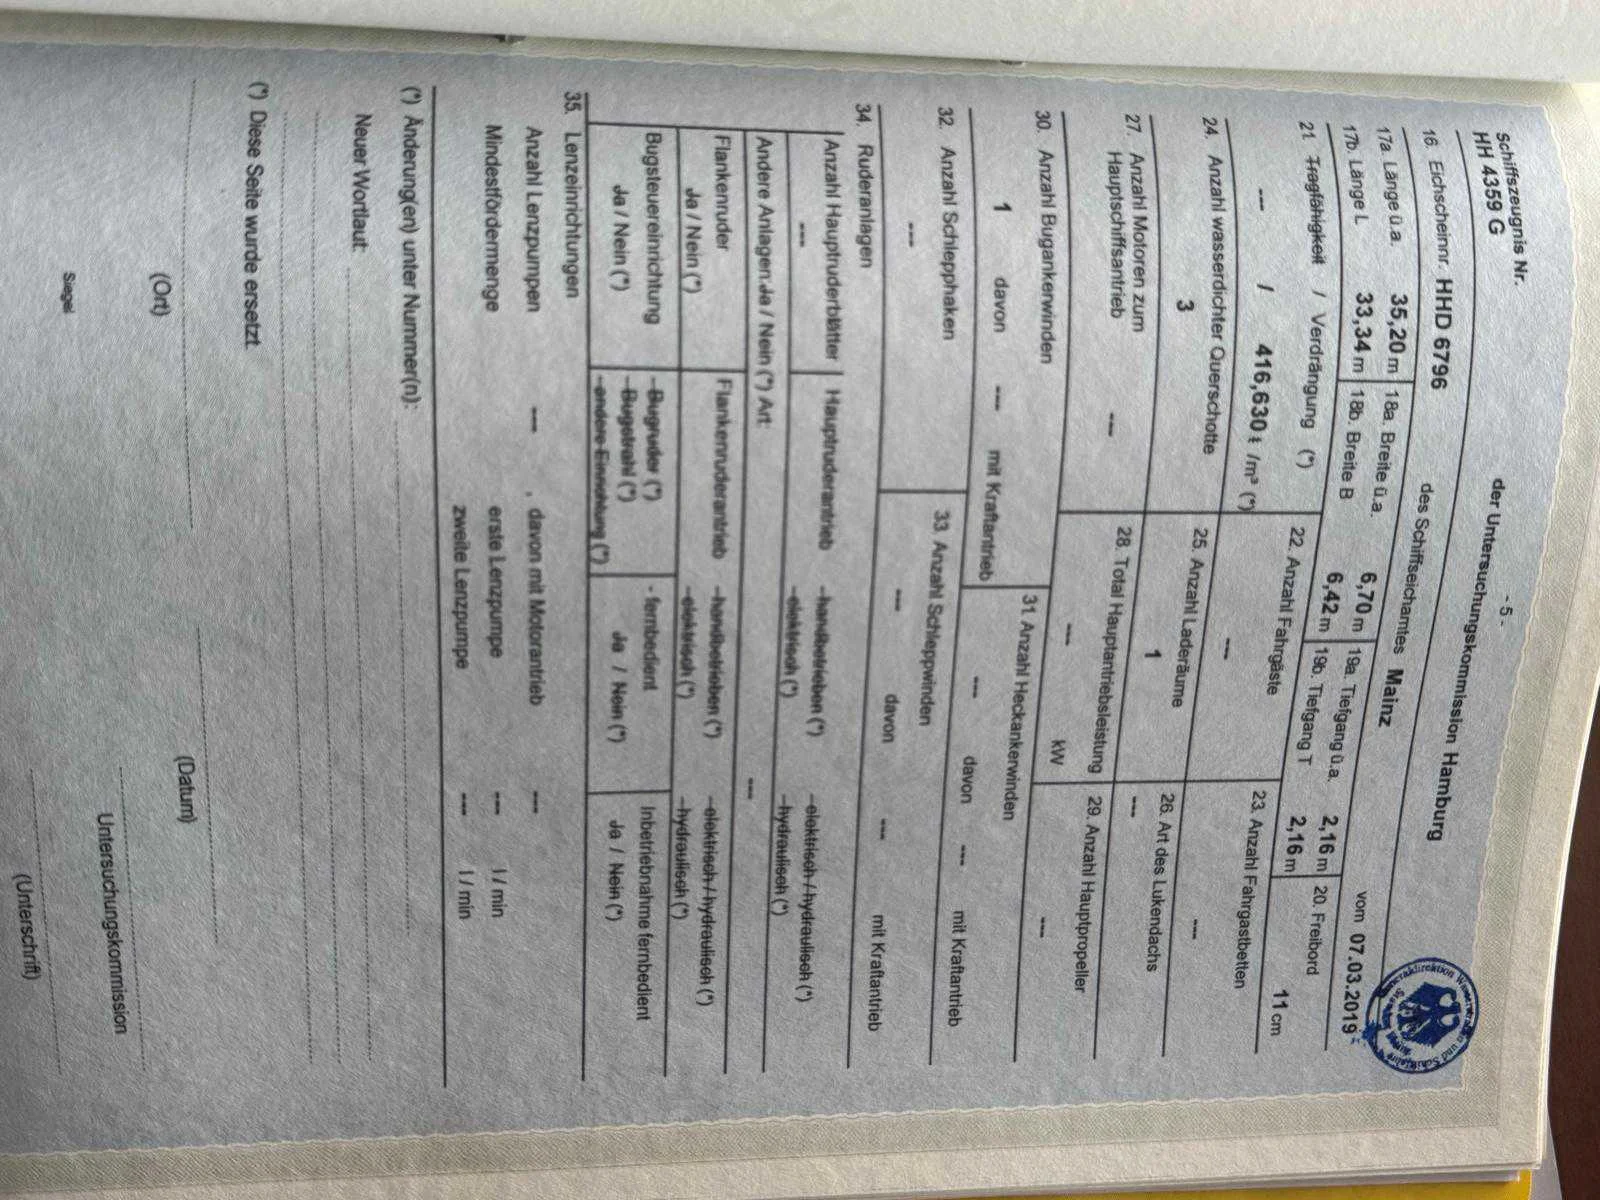 - 5 -
Schiffszeugnis Nr. HH 4359 G der Untersuchungskommission Hamburg
16. Eichscheinnr. HHD 6796 des Schiffseichamtes Mainz vom 07.03.2019
17a. Länge ü.a. 35,20 m 18a. Breite ü.a. 6,70 m 19a. Tiefgang ü.a. 2,16 m 20. Freibord
17b. Länge L 33,34 m 18b. Breite B 6,42 m 19b. Tiefgang T 2,16 m 11 cm
21. Tragfähigkeit / Verdrängung (*) 22. Anzahl Fahrgäste 23. Anzahl Fahrgastbetten
--- / 416,630 t /m³ (*) --- ---
24. Anzahl wasserdichter Querschotte 25. Anzahl Laderäume 26. Art des Lukendachs
3 1 ---
27. Anzahl Motoren zum 28. Total Hauptantriebsleistung 29. Anzahl Hauptpropeller
Hauptschiffsantrieb
--- --- kW ---
30. Anzahl Bugankerwinden 31. Anzahl Heckankerwinden
1 davon --- mit Kraftantrieb --- davon --- mit Kraftantrieb
32. Anzahl Schlepphaken 33. Anzahl Schleppwinden
--- --- davon --- mit Kraftantrieb
34. Ruderanlagen
Anzahl Hauptruderblätter Hauptruderantrieb - handbetrieben (*) - elektrisch / hydraulisch (*)
--- - elektrisch (*) - hydraulisch (*)
Andere Anlagen: Ja / Nein (*) Art: ---
Flankenruder Flankenruderantrieb - handbetrieben (*) - elektrisch / hydraulisch (*)
Ja / Nein (*) - elektrisch (*) - hydraulisch (*)
Bugsteuereinrichtung - Bugruder (*) - fernbedient Inbetriebnahme fernbedient
Ja / Nein (*) - Bugstrahl (*) Ja / Nein (*) Ja / Nein (*)
- andere Einrichtung (*)
35. Lenzeinrichtungen
Anzahl Lenzpumpen --- , davon mit Motorantrieb ---
Mindestfördermenge erste Lenzpumpe --- l / min
zweite Lenzpumpe --- l / min
(*) Änderung(en) unter Nummer(n):
Neuer Wortlaut:
(*) Diese Seite wurde ersetzt.
(Ort) (Datum)
Untersuchungskommission
Siegel
(Unterschrift)